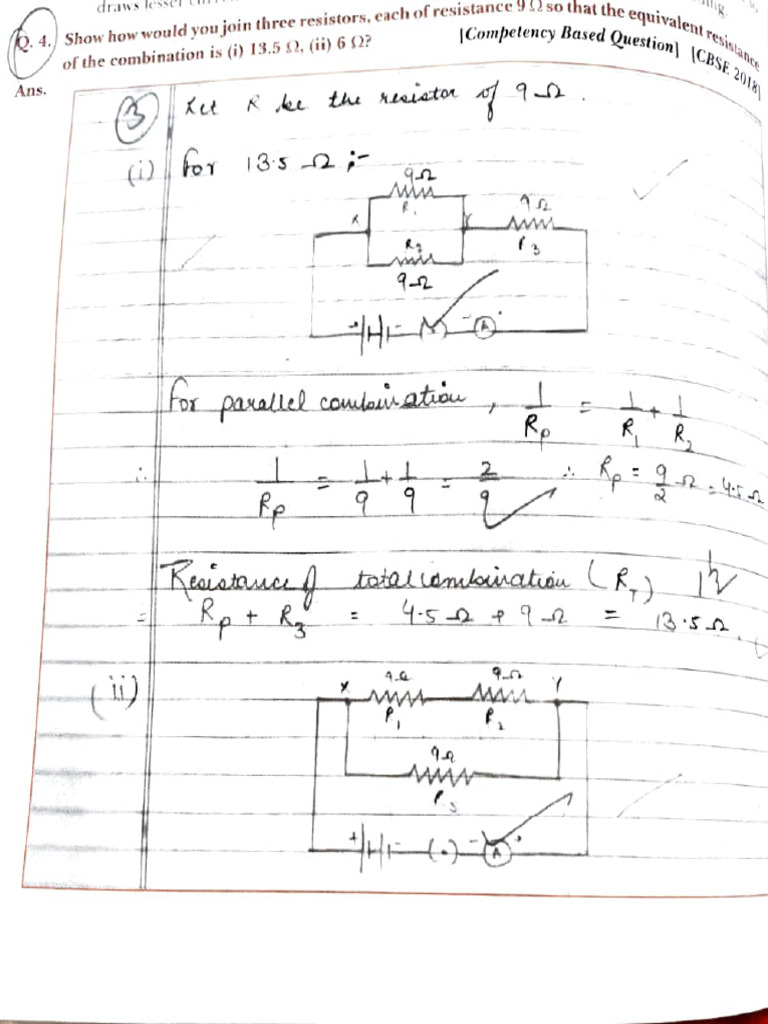 draws lesser
Q. 4. Show how would you join three resistors, each of resistance 9 Ω so that the equivalent resistance
of the combination is (i) 13.5 Ω, (ii) 6 Ω?
[Competency Based Question] [CBSE 2018]
Ans.
3 Let R be the resistor of 9 Ω.
(i) For 13.5 Ω :-
9Ω
R1
X Y 9Ω
R2 R3
9Ω
+ - - + A
For parallel combination, 1/Rp = 1/R1 + 1/R2
∴ 1/Rp = 1/9 + 1/9 = 2/9 ∴ Rp = 9/2 Ω = 4.5 Ω
Resistance of total combination (RT) 1½
= Rp + R3 = 4.5 Ω + 9 Ω = 13.5 Ω.
(ii)
X 9Ω 9Ω Y
R1 R2
9Ω
R3
+ - (.) - A +